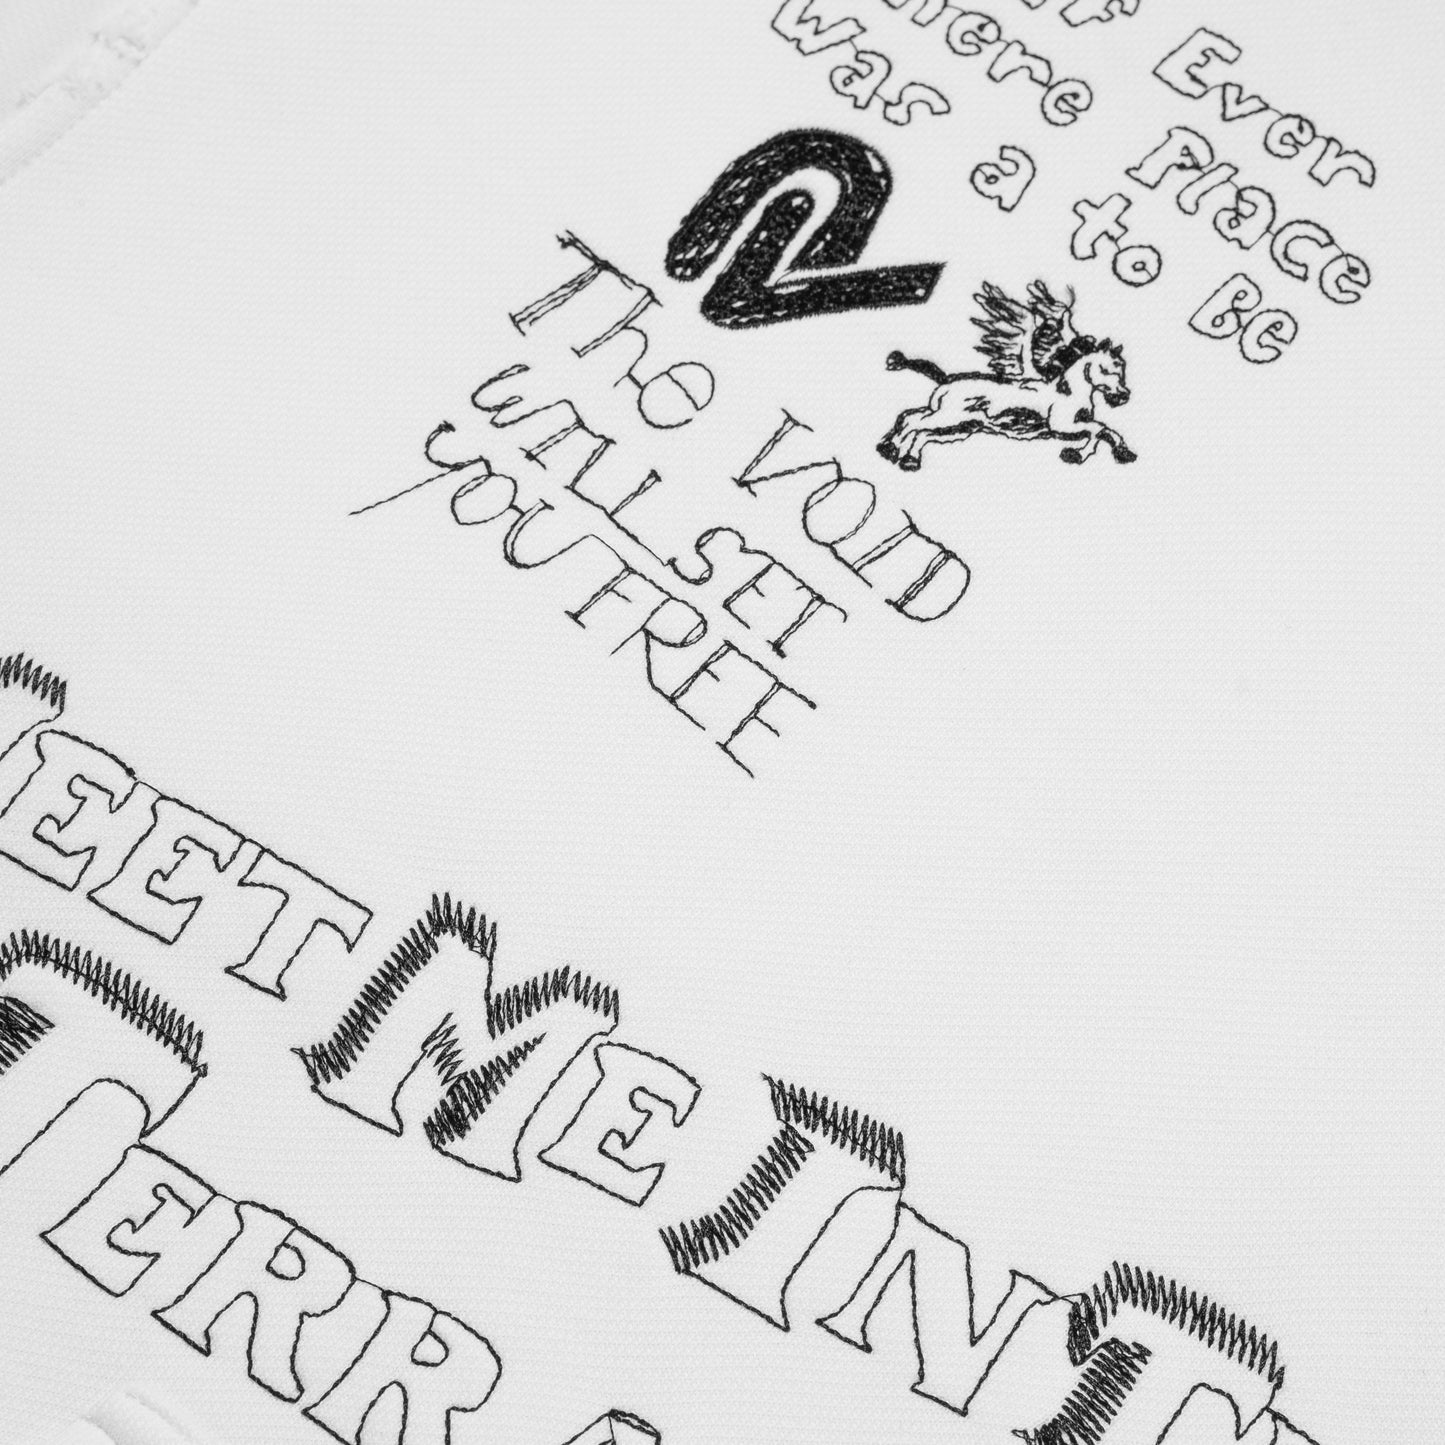 If Ever
There Place
was a to Be
The VOID
WILL SET
YOU FREE
MEET ME IN T
TERRA